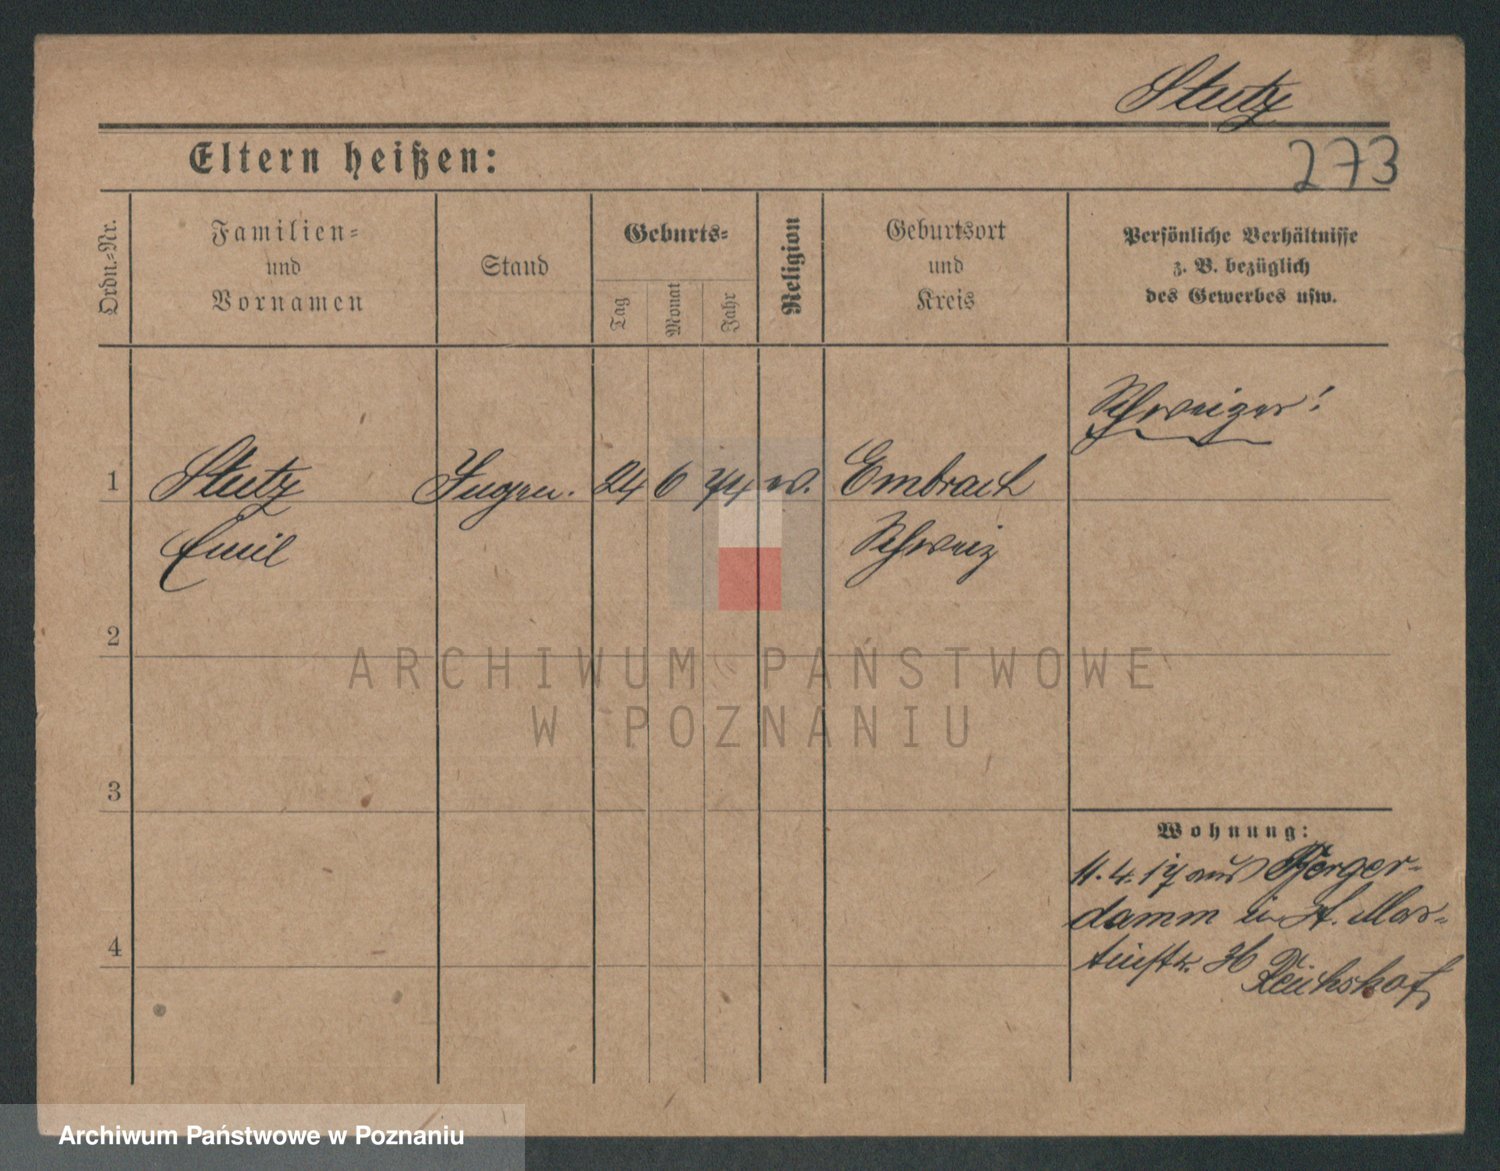 Stutz
Eltern heißen:
273
Ordn.-Nr.
Familien-
und
Vornamen
Stand
Geburts-
Tag
Monat
Jahr
Religion
Geburtsort
und
Kreis
Persönliche Verhältnisse
z. B. bezüglich
des Gewerbes usw.
Schweizer!
1 Stutz 24 6 74 Embrach
Emil Schweiz
2
3
4
Wohnung:
11.4.17 aus
damm in St. Mar-
tinstr. Reichshof
ARCHIWUM PAŃSTWOWE
W POZNANIU
Archiwum Państwowe w Poznaniu